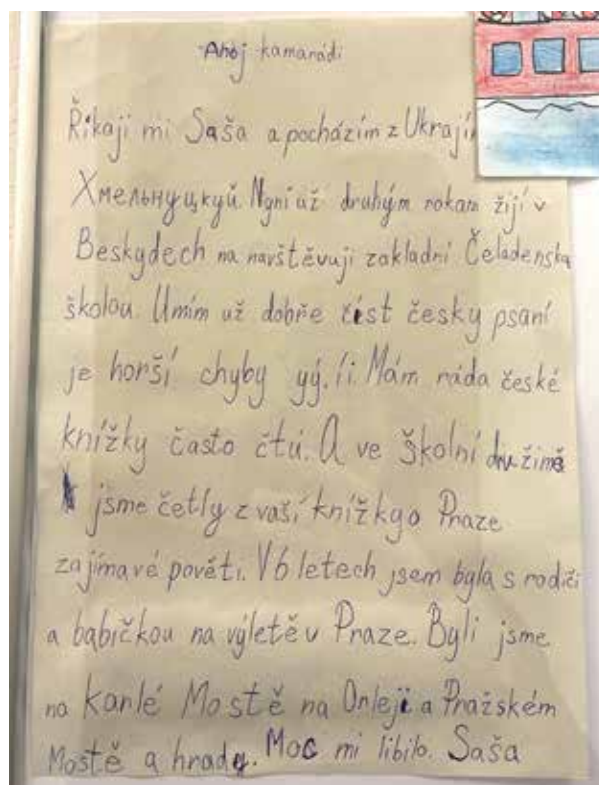 Ahoj kamarádi
Říkaji mi Saša a pocházím z Ukrajin
Хмельнуцкуй. Nyní už druhým rokam žijí v
Beskydech na navštěvuji zakladní Čeladenska
školou. Umím už dobře číst česky psaní
je horší chyby yý, íi. Mám ráda české
knížky často čtú. A ve školní družimě
jsme četly z vaší knížkyo Praze
zajímavé pověti. V 6 letech jsem byla s rodiči
a babičkou na výletě v Praze. Byli jsme
na Karlé Mostě na Orleji a Pražském
Mostě a hrady. Moc mi libilo. Saša